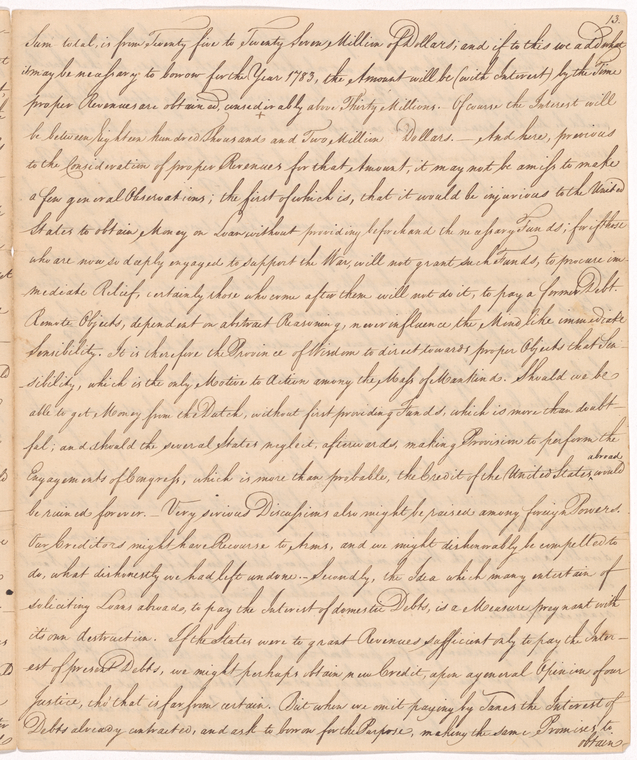 13.
Sum total, is from Twenty five to Twenty Seven Million of Dollars; and if to this we add what
it may be necessary to borrow for the Year 1783, the Amount will be (with Interest) by the Time
proper Revenues are obtained, considerably above Thirty Millions. Of course the Interest will
be between Eighteen hundred Thousand and Two Million Dollars. — And here, previous
to the Consideration of proper Revenues for that Amount, it may not be amiss to make
a few general Observations; the first of which is, that it would be injurious to the United
States to obtain Money on Loan without providing beforehand the necessary Funds; for if those
who are now so deeply engaged to support the War, will not grant such Funds, to procure im-
mediate Relief, certainly those who come after them will not do it, to pay a former Debt.
Remote Objects, dependent on abstract Reasoning, never influence the Mind like immediate
Sensibility. It is therefore the Province of Wisdom to direct towards proper Objects that Sen-
sibility, which is the only Motive to Action among the Mass of Mankind. Should we be
able to get Money from the Dutch, without first providing Funds, which is more than doubt-
ful; and should the several States neglect, afterwards, making Provision to perform the
abroad
Engagements of Congress, which is more than probable, the Credit of the United States, would
be ruined forever. — Very serious Discussions also might be raised among foreign Powers.
Our Creditors might have Recourse to Arms, and we might dishonorably be compelled to
do, what dishonestly we had left undone. — Secondly, the Idea which many entertain of
soliciting Loans abroad, to pay the Interest of domestic Debts, is a Measure pregnant with
its own destruction. If the States were to grant Revenues sufficient only to pay the Inter-
est of present Debts, we might perhaps obtain new Credit, upon a general Opinion of our
Justice, tho' that is far from certain. But when we omit paying by Taxes the Interest of
Debts already contracted, and ask to borrow for the Purpose, making the same Promises, to
obtain